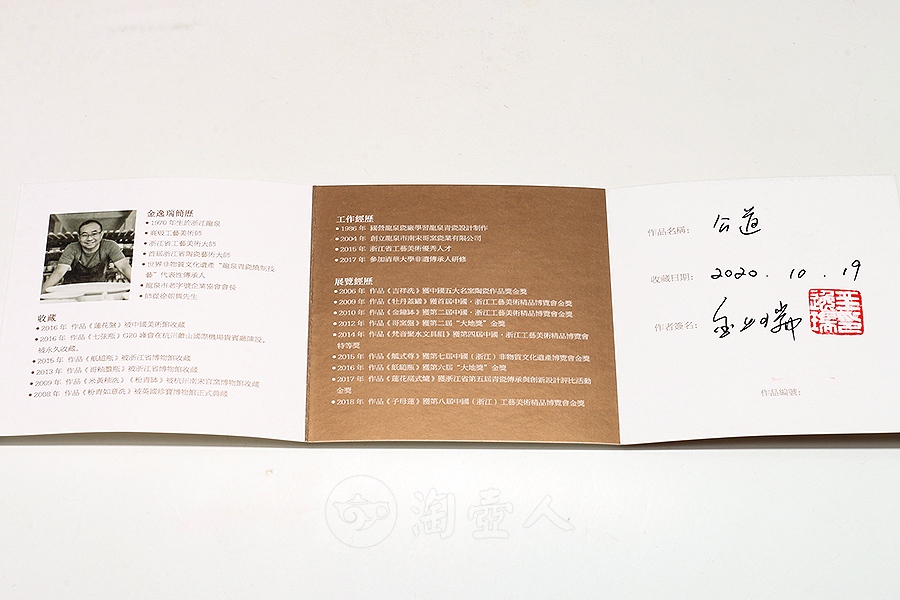 金逸瑞簡歷
• 1970 年生於浙江龍泉
• 高級工藝美術師
• 浙江省工藝美術大師
• 首屆浙江省陶瓷藝術大師
• 世界非物質文化遺產“龍泉青瓷燒制技
藝”代表性傳承人
• 龍泉市老字號企業協會會長
• 師從徐朝興先生
收藏
• 2016 年 作品《蓮花盤》被中國美術館收藏
• 2016 年 作品《七弦瓶》G20 峰會在杭州蕭山國際機場貴賓廳陳設,
被永久收藏。
• 2015 年 作品《紙槌瓶》被浙江省博物館收藏
• 2013 年 作品《哥釉盤瓶》被浙江省博物館收藏
• 2009 年 作品《米黃釉洗》《粉青缽》被杭州南宋官窯博物館收藏
• 2008 年 作品《粉青如意洗》被英國珍寶博物館正式典藏
工作經歷
• 1986 年 國營龍泉瓷廠學習龍泉青瓷設計制作
• 2004 年 創立龍泉市南宋哥窯瓷業有限公司
• 2015 年 浙江省工藝美術優秀人才
• 2017 年 參加清華大學非遺傳承人研修
展覽經歷
• 2006 年 作品《吉祥洗》獲中國五大名窯陶瓷作品獎金獎
• 2009 年 作品《牡丹蓋罐》獲首屆中國・浙江工藝美術精品博覽會金獎
• 2010 年 作品《金鐘缽》獲第二屆中國・浙江工藝美術精品博覽會金獎
• 2012 年 作品《哥窯盤》獲第二屆“大地獎”金獎
• 2014 年 作品《梵音聚水文具組》獲第四屆中國・浙江工藝美術精品博覽會
特等獎
• 2015 年 作品《觚式尊》獲第七屆中國(浙江)非物質文化遺產博覽會金獎
• 2016 年 作品《紙槌瓶》獲第六屆“大地獎”金獎
• 2017 年 作品《蓮花隔式爐》獲浙江省第五屆青瓷傳承與創新設計評比活動
金獎
• 2018 年 作品《子母蓮》獲第八屆中國(浙江)工藝美術精品博覽會金獎
作品名稱: 公道
收藏日期: 2020. 10. 19
作者簽名: 金逸瑞
作品編號:
淘壺人